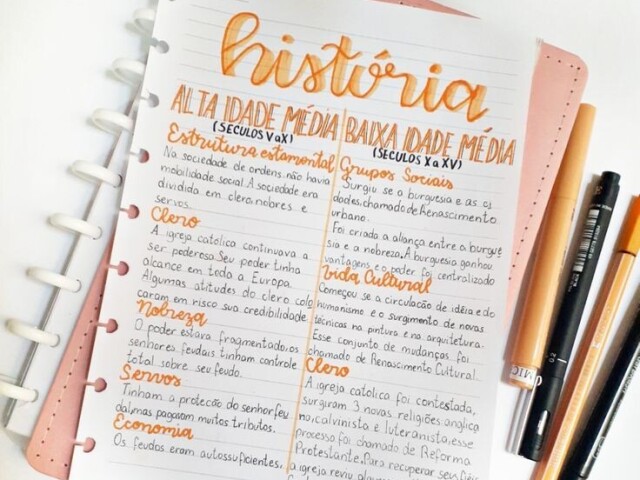 história
ALTA IDADE MÉDIA
(SECULOS V a X)
Estrutura estamental
Na sociedade de ordens não havia
mobilidade social. A sociedade era
dividida em clero, nobres e
servos.
Clero
A igreja catolica continuava a
ser poderosa. Seu peder tinha
alcance em todo a Europa.
Algumas atitudes do clero colo
caram em risco sua credibilidade
Nobreza
O poder estara fragmentado, os
senhores feudais tinham controle
total sobre seu feudo.
Servos
Tinham a protecão do senhor feu
dal, mas pagavam muitos tributos.
Economia
Os feudos eram autossuficientes,
BAIXA IDADE MÉDIA
(SECULOS X a XV)
Grupos Sociais
Surgiu se a burguesia e as ci
dades, chamado de Renascimento
urbano.
Foi criada a aliança entre a burgue
sia e a nobreza. A burguesia ganhou
vantagens e o poder foi centralizado
Vida Cultural
Começou se a circulação de idéia e do
humanismo e o surgimento de novas
técnicas na pintura e na arquitetura.
Esse conjunto de mudanças foi
chamado de Renascimento Cultural.
Clero
A igreja catolica foi contestada,
surgiram 3 novas religiões: anglica
no, calvinista e luteranista, esse
processo foi chamado de Reforma
Protestante. Para recuperar seus fiéis
a igreja reviu